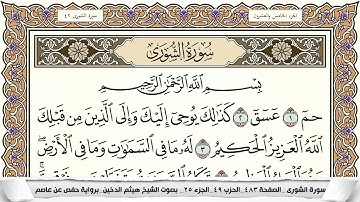 الجزء الخامس والعشرون
سورة الشورى ٤٢
سُورَةُ الشُّورَىٰ
بِسْمِ اللَّهِ الرَّحْمَٰنِ الرَّحِيمِ
حمٓ ١ عٓسٓقٓ ٢ كَذَٰلِكَ يُوحِىٓ إِلَيْكَ وَإِلَى ٱلَّذِينَ مِن قَبْلِكَ
ٱللَّهُ ٱلْعَزِيزُ ٱلْحَكِيمُ ٣ لَهُۥ مَا فِى ٱلسَّمَٰوَٰتِ وَمَا فِى ٱلْأَرْضِۖ
سورة الشورى _ الصفحة ٤٨٣_ الحزب ٤٩_ الجزء ٢٥ _ بصوت الشيخ هيثم الدخين_ برواية حفص عن عاصم